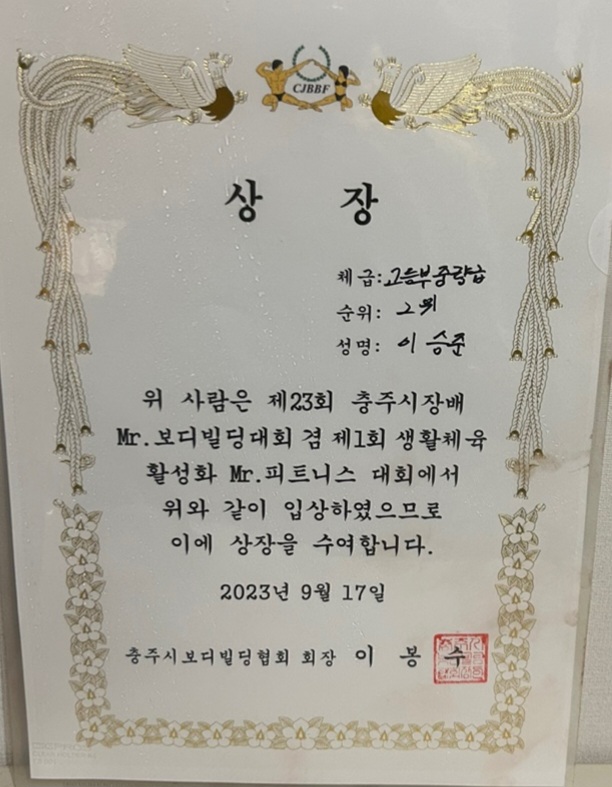 CJBBF
상 장
체급: 고등부 중량급
순위: 2위
성명: 이승준
위 사람은 제23회 충주시장배
Mr.보디빌딩대회 겸 제1회 생활체육
활성화 Mr.피트니스 대회에서
위와 같이 입상하였으므로
이에 상장을 수여합니다.
2023년 9월 17일
충주시보디빌딩협회 회장 이 봉 수